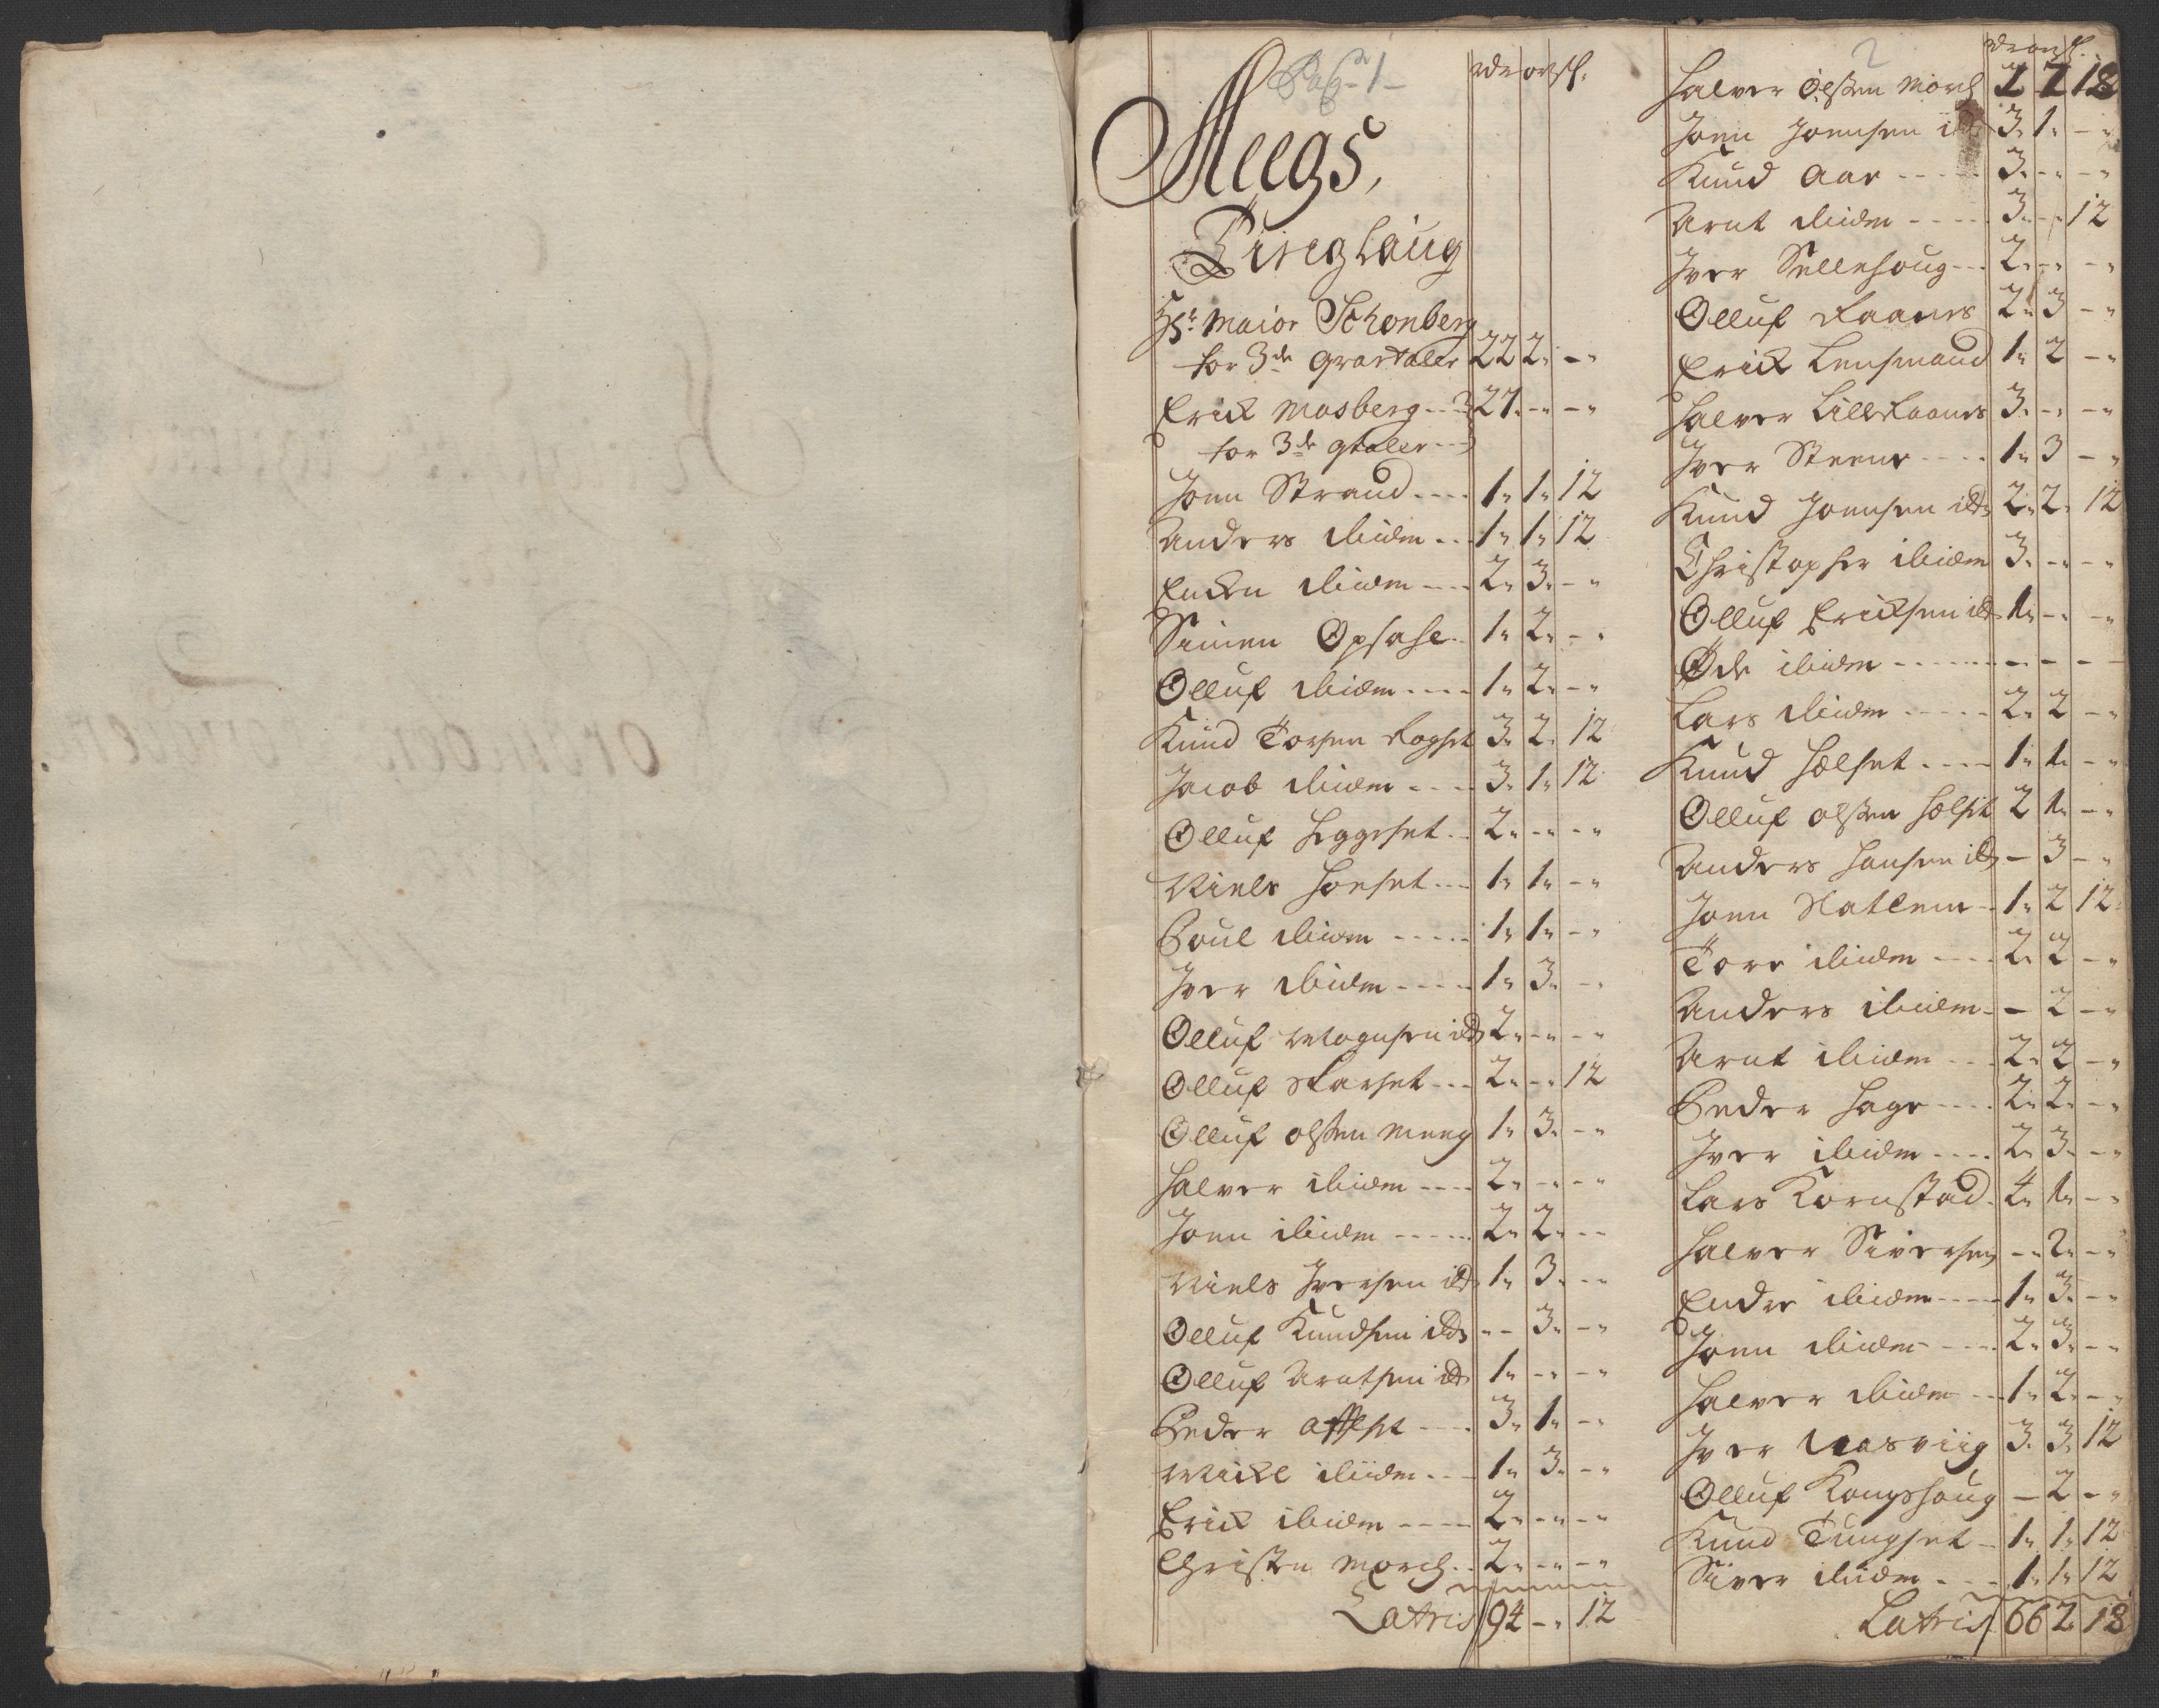 Pag 1
rdr ort sh:
Meegs,
Tinglaug
Hr: Maior Schonberg
for 3de qvartaler 22 2 - -
Erick Mosberg 27 - -
for 3de qtaler
Joen Strand 1 1 12
Anders ibidm 1 1 12
Encken ibidm 2 3 -
Simen Opsahl 1 2 -
Olluf ibidm 1 2 -
Knud Torsen Rogset 3 2 12
Jacob ibidm 3 1 12
Olluf Heggeset 2 - -
Niels Horset 1 1 -
Poul ibidm 1 1 -
Iver ibidm 1 3 -
Olluf Mogensen ibd 2 - -
Olluf Skarset 2 - 12
Olluf Olsten Meeg 1 3 -
Halver ibidm 2 - -
Joen ibidm 2 2 -
Niels Iversen ibd 1 3 -
Olluf Knudsen ibd - 3 -
Olluf Arntsen ibd 1 - -
Peder 3 1 -
Mickl ibidm 1 3 -
Erick ibidm 2 - -
Christen Morch 2 - -
Latris 94 - 12
2
rdr ort sh.
Halver Olsten Morch 1 1 18
Joen Joensen ibd 3 1 -
Knud Aar 3 - -
Arnt ibidm 3 - 12
Iver Sellehoug 2 - -
Olluf Raanes 2 3 -
Erick Lensmand 1 2 -
Halver Lille Raanes 3 - -
Iver Steene 1 3 -
Knud Joensen ibd 2 2 12
Christopher ibidm 3 - -
Olluf Ericksen ibd 1 - -
Øde ibidm - - -
Lars ibidm 2 2 -
Knud Holset 1 1 -
Olluf Olsten Holset 2 1 -
Anders Hansen ibd - 3 -
Joen Natlem 1 2 12
Tore ibidm 2 2 -
Anders ibidem - 2 -
Arnt ibidm 2 2 -
Peder Hage 2 2 -
Iver ibidm 2 3 -
Lars Kornstad 4 1 -
Halver Siversen - 2 -
Endre ibidm 1 3 -
Joen ibidm 2 3 -
Halver ibidm 1 2 -
Iver Aasviig 3 3 12
Olluf Kongshoug - 2 -
Knud Tungset 1 1 12
Siver ibidm 1 1 12
Latris 66 2 18